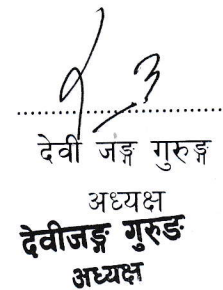 देवी जंङ्ग गुरुङ्ग
अध्यक्ष
देवीजङ्ग गुरुङ
अध्यक्ष